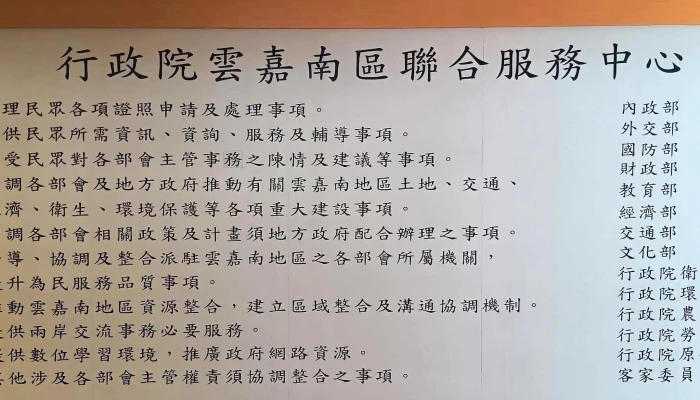 行政院雲嘉南區聯合服務中心
理民眾各項證照申請及處理事項。
供民眾所需資訊、資詢、服務及輔導事項。
受民眾對各部會主管事務之陳情及建議等事項。
調各部會及地方政府推動有關雲嘉南地區土地、交通、
濟、衛生、環境保護等各項重大建設事項。
調各部會相關政策及計畫須地方政府配合辦理之事項。
導、協調及整合派駐雲嘉南地區之各部會所屬機關，
升為民服務品質事項。
動雲嘉南地區資源整合，建立區域整合及溝通協調機制。
供兩岸交流事務必要服務。
供數位學習環境，推廣政府網路資源。
他涉及各部會主管權責須協調整合之事項。
內政部
外交部
國防部
財政部
教育部
經濟部
交通部
文化部
行政院衛
行政院環
行政院農
行政院勞
行政院原
客家委員